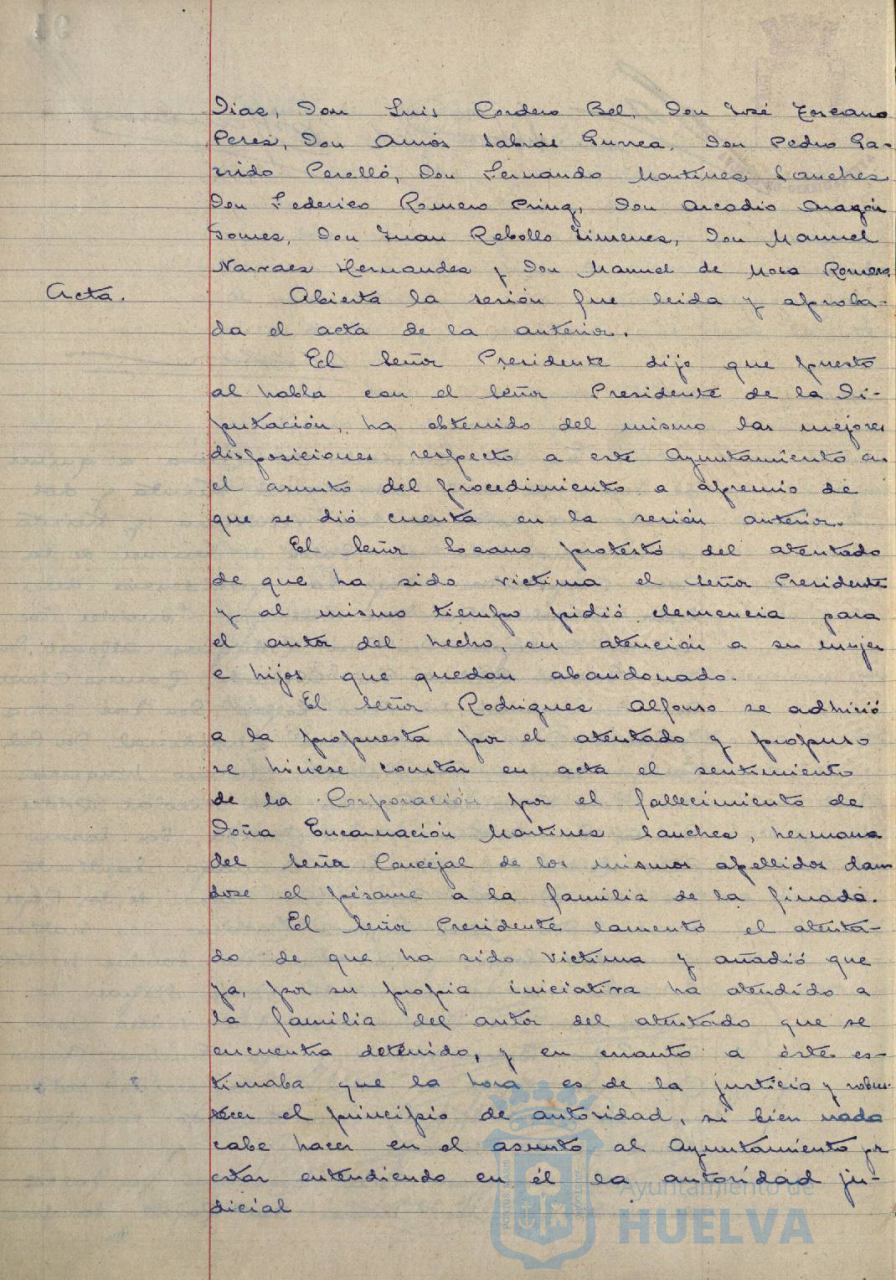 Dias, Don Luis Cordero Bel, Don José Toscano
Peres, Don Amós Sabrás Gurrea, Don Pedro Ga-
rrido Perelló, Don Fernando Martines Sanches
Don Federico Romero Pring, Don Arcadio Aragón
Gomes, Don Juan Rebollo Jimenes, Don Manuel
Narvaes Hernandes y Don Manuel de Mora Romero
Acta.
Abierta la sesión fue leida y aproba-
da el acta de la anterior.
El Señor Presidente dijo que puesto
al habla con el Señor Presidente de la Di-
putación, ha obtenido del mismo las mejores
disposiciones respecto a este Ayuntamiento en
el asunto del procedimiento a apremio de
que se dió cuenta en la sesión anterior.
El Señor Losano protestó del atentado
de que ha sido victima el Señor Presidente
y al mismo tiempo pidió clemencia para
el autor del hecho, en atención a su mujer
e hijos que quedan abandonado.
El Señor Rodrigues Alfonso se adhirió
a la propuesta por el atentado y propuso
se hiciese constar en acta el sentimiento
de la Corporación por el fallecimiento de
Doña Encarnación Martines Sanches, hermana
del Señor Concejal de los mismos apellidos dan
dose el pésame a la familia de la finada.
El Señor Presidente lamentó el atenta-
do de que ha sido victima y añadió que
ya, por su propia iniciativa ha atendido a
la familia del autor del atentado que se
encuentra detenido, y en cuanto a éste es-
timaba que la hora es de la justicia y robus-
tecer el principio de autoridad, si bien nada
cabe hacer en el asunto al Ayuntamiento por
estar entendiendo en él la autoridad ju-
dicial
Ayuntamiento de
HUELVA